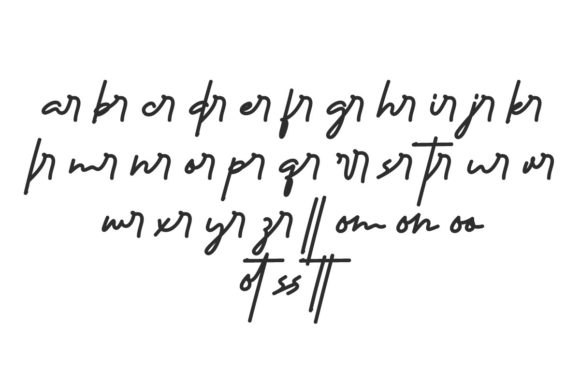 ar br cr dr er fr gr hr ir jr kr
lr mr nr or pr qr rr sr tr ur vr
wr xr yr zr ll om on oo
ot ss tt